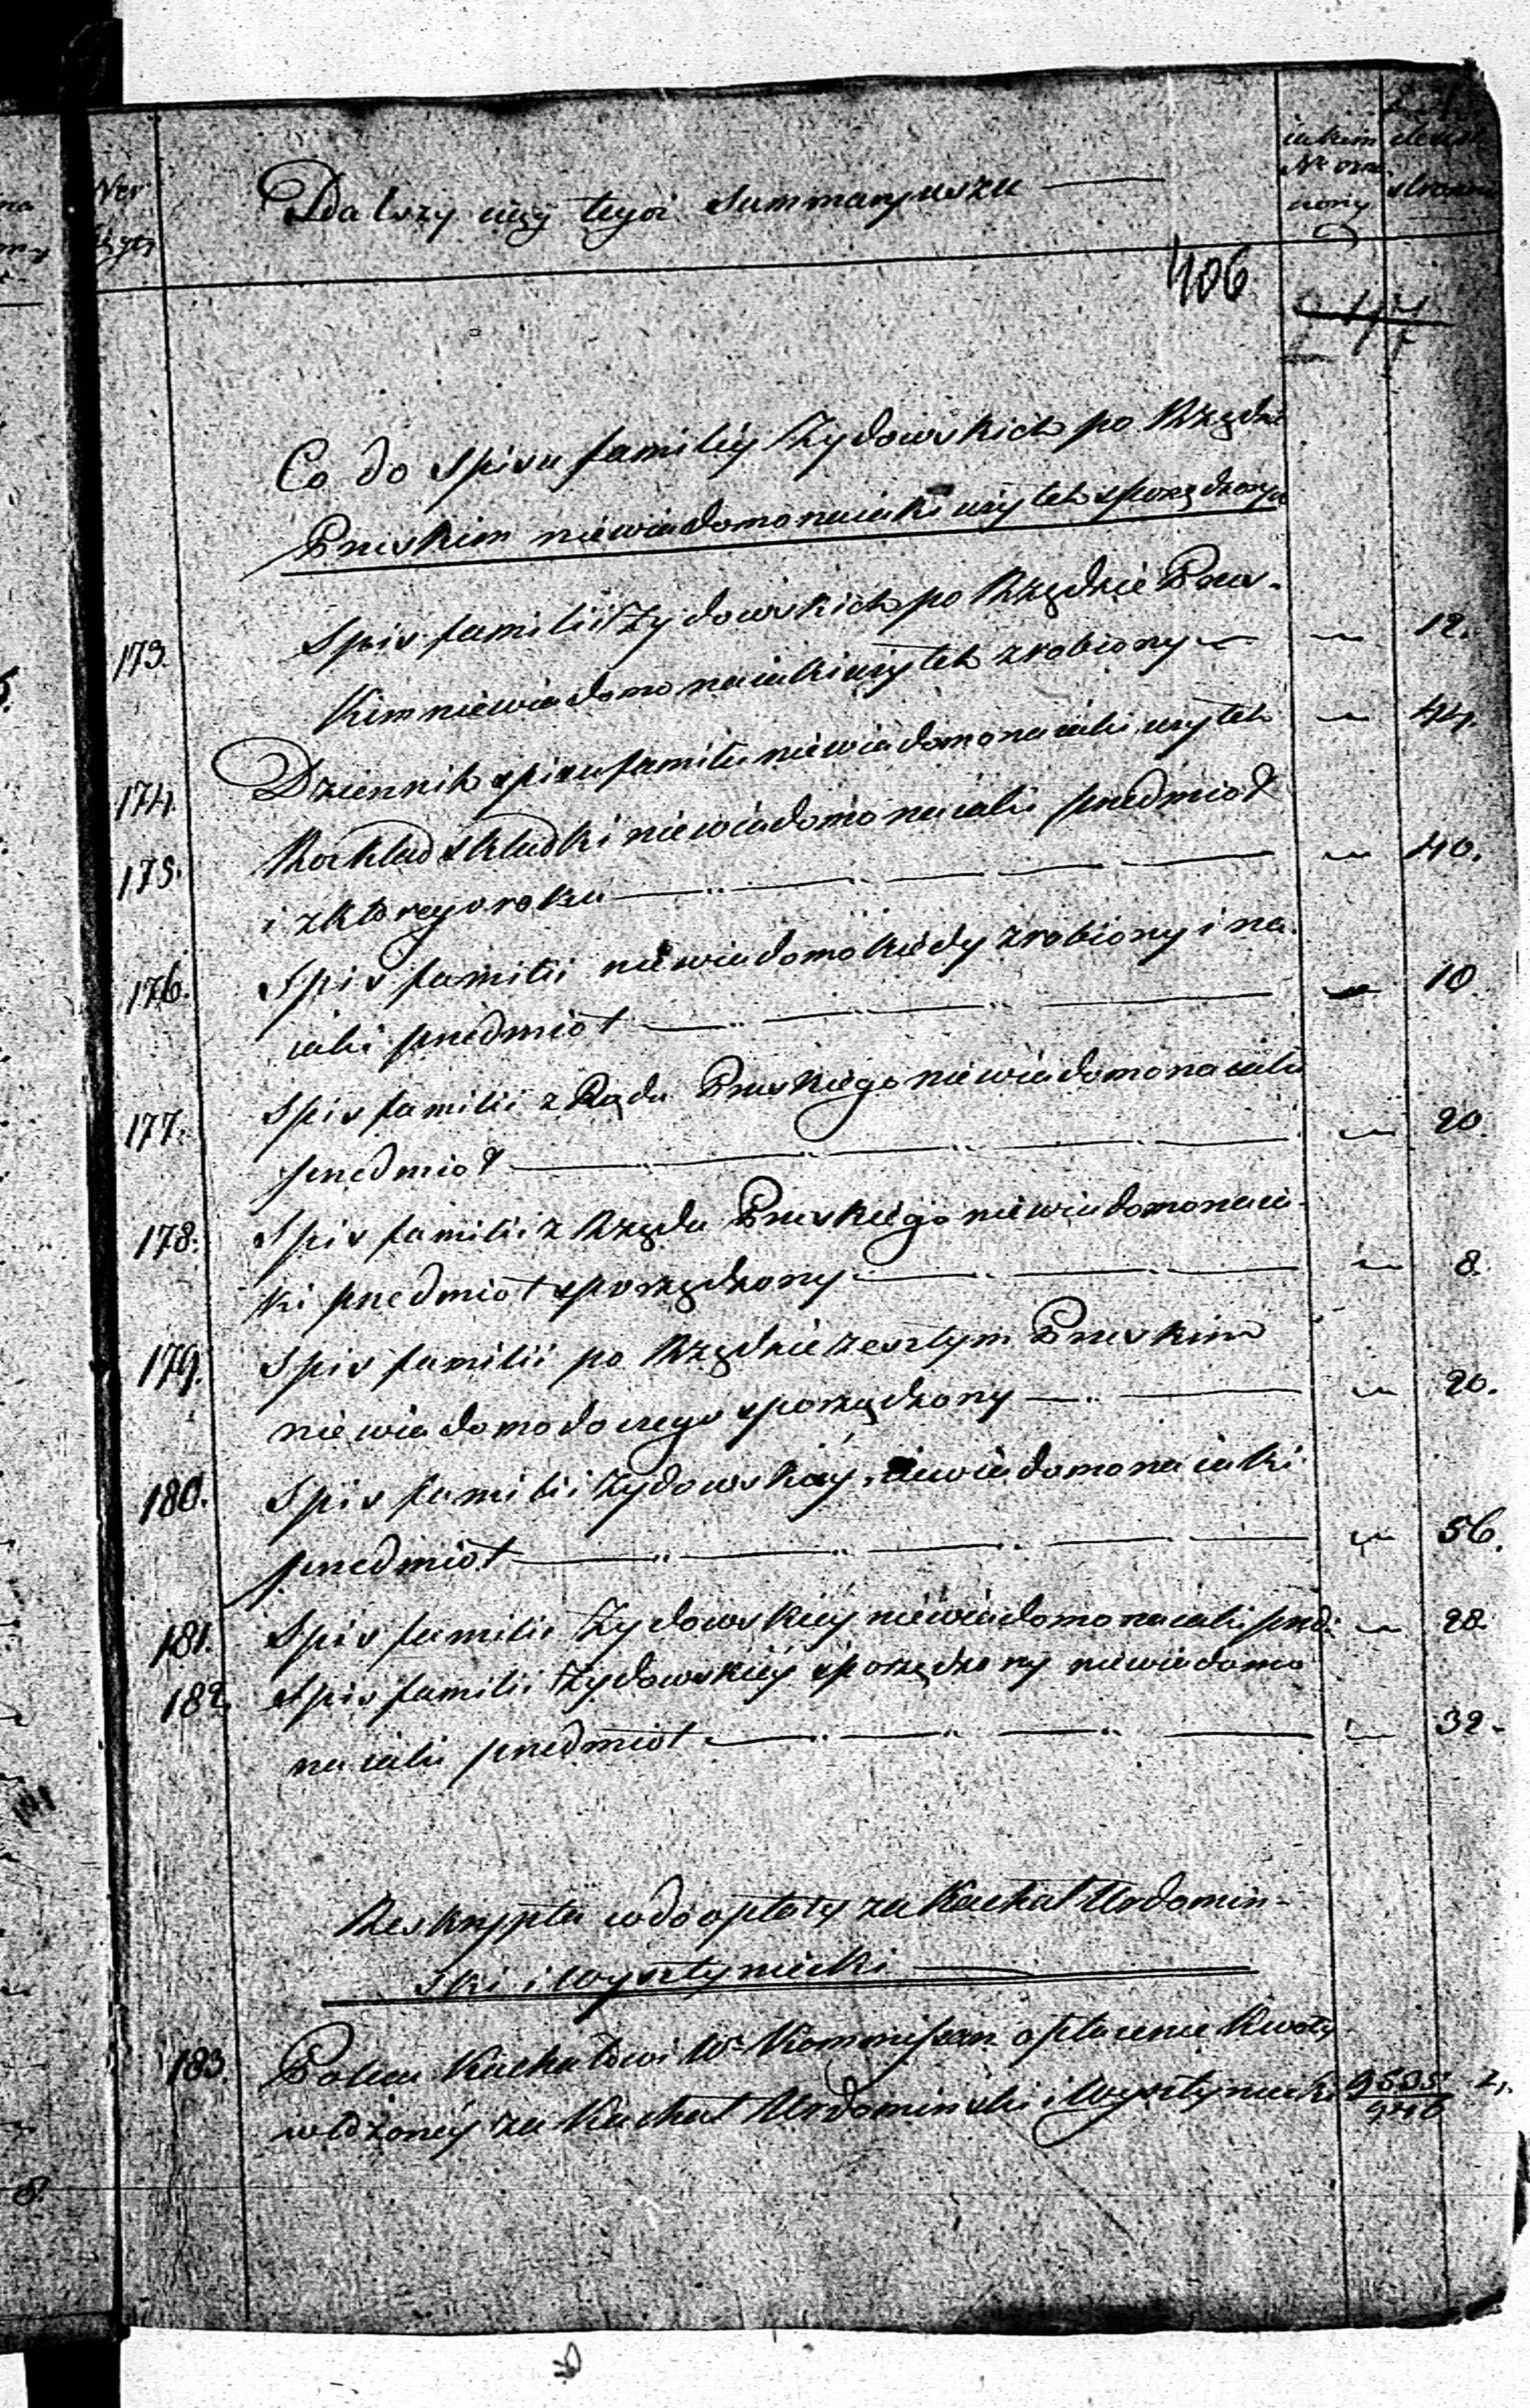 Nro
Dalszy ciąg tegoż Summaryuszu
iakim
Nr ozna
czony
stronnic
406
Co do Spisu familiy Żydowskich po Rządzie
Pruskim niewiadomo na iaki użytek sporządzonych
173. Spis familii Żydowskich po Rządzie Prus- 12.
kim niewiadomo na iaki użytek zrobiony
174. Dziennik spisu familii niewiadomo na iaki użytek 44.
175. Rozkład składki niewiadomo na iaki przedmiot
i z którego roku 40.
176. Spis familii niewiadomo kiedy zrobiony i na
iaki przedmiot 10
177. Spis familii z Rządu Pruskiego niewiadomo na iaki
przedmiot 20.
178. Spis familii z Rządu Pruskiego niewiadomo na ia-
ki przedmiot sporządzony 8.
179. Spis familii po Rządzie zeszłym Pruskim
niewiadomo do czego sporządzony 20.
180. Spis familii Żydowskiey niewiadomo na iaki
przedmiot 56.
181. Spis familii Żydowskiey niewiadomo na iaki przed: 28.
182. Spis familii Żydowskiey sporządzony niewiadomo
na iaki przedmiot 32.
Reskrypta wdo opłaty za Kachał Urdomin-
ski i Wysztyniecki
183. Poleca Kachałowi W. Kommissarz opłacenie kwoty
włożoney za Kachał Urdominski i Wysztyniecki 2.